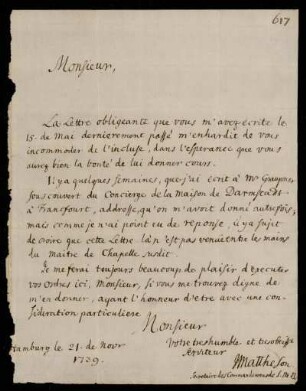 617
Monsieur,
La Lettre obligeante que vous m'avez ecrite le
15. de Mai dernierement passé m'enhardit de vous
incommoder de l'incluse, dans l'esperance que vous
aurez bien la bonté de lui donner cours.
Il y a quelques semaines, que j'ai ecrit à Mr
sous couvert du Concierge de la Maison de Darmstadt
à Francfourt, addresse, qu'on m'avoit donné autrefois,
mais comme je n'ai point eu de reponse, il y a sujet
de croire que cette Lettre là n'est pas venue entre les mains
du Maitre de Chapelle susdit.
Je me ferai toujours beaucoup de plaisir d'executer
vos ordres ici, Monsieur, si vous me trouvez digne de
m'en donner, ayant l'honneur d'etre avec une con-
sideration particuliere
Monsieur
Votre tres humble et tres obeisst
Serviteur
Hamburg le 21. de Novr
1729.
Mattheson